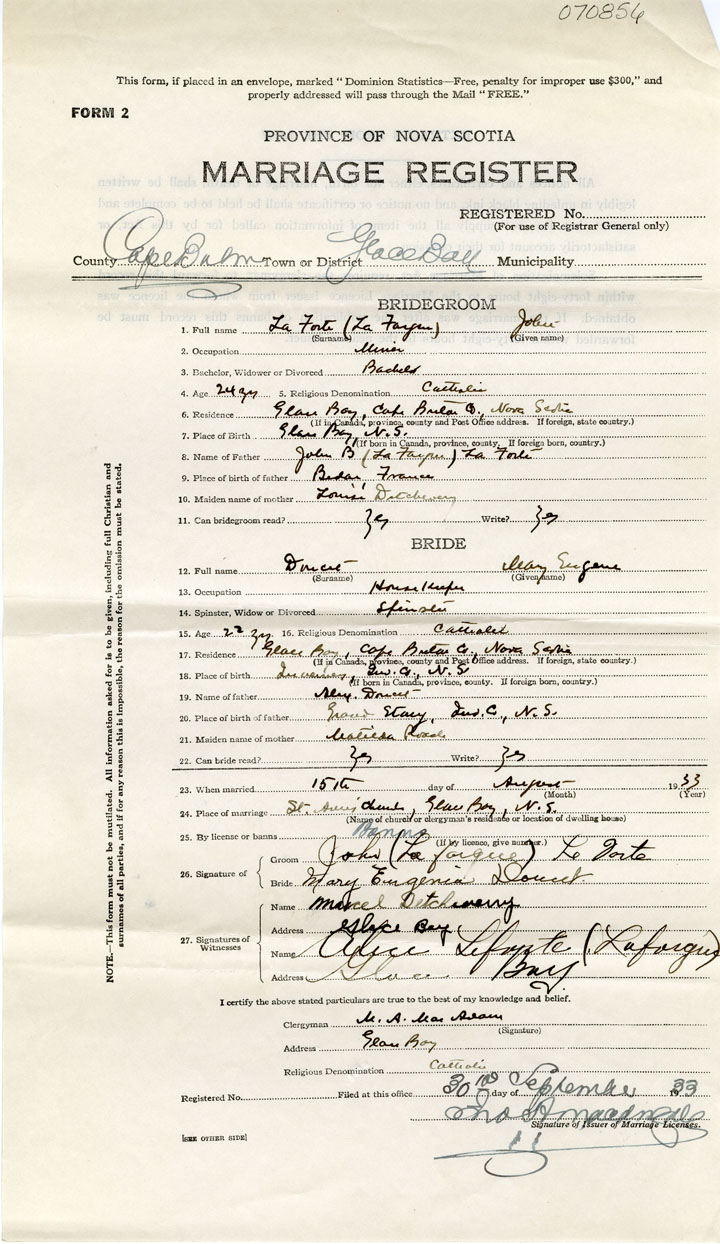 070856
This form, if placed in an envelope, marked "Dominion Statistics—Free, penalty for improper use $300," and
properly addressed will pass through the Mail "FREE."
FORM 2
PROVINCE OF NOVA SCOTIA
MARRIAGE REGISTER
REGISTERED No.
(For use of Registrar General only)
County Cape Breton Town or District Glace Bay Municipality
BRIDEGROOM
1. Full name La Forte (La Fargue) John
(Surname) (Given name)
2. Occupation Miner
3. Bachelor, Widower or Divorced Bachelor
4. Age 24 yr 5. Religious Denomination Catholic
6. Residence Glace Bay, Cape Breton Co., Nova Scotia
(If in Canada, province, county and Post Office address. If foreign, state country.)
7. Place of Birth Glace Bay, N.S.
(If born in Canada, province, county. If foreign born, country.)
8. Name of Father John B (La Fargue) La Forte
9. Place of birth of father France
10. Maiden name of mother Louise Detcheverry
11. Can bridegroom read? Yes Write? Yes
BRIDE
12. Full name Doucet Mary Eugene
(Surname) (Given name)
13. Occupation House Keeper
14. Spinster, Widow or Divorced Spinster
15. Age 22 yr 16. Religious Denomination Catholic
17. Residence Glace Bay, Cape Breton Co., Nova Scotia
(If in Canada, province, county and Post Office address. If foreign, state country.)
18. Place of Birth Inverness, Inv. Co., N.S.
(If born in Canada, province, county. If foreign born, country.)
19. Name of father Alex. Doucet
20. Place of birth of father Grand Etang, Inv. C., N.S.
21. Maiden name of mother Matilda
22. Can bride read? Yes Write? Yes
23. When married 15th day of August 1933
(Month) (Year)
24. Place of marriage St. Ann's church, Glace Bay, N.S.
(Name of church or clergyman's residence or location of dwelling house)
25. By license or banns Banns
(If by licence, give number.)
26. Signature of
Groom John (La forgue) Le Forte
Bride Mary Eugenia Doucet
27. Signatures of Witnesses
Name Marcel Detcheverry
Address Glace Bay
Name Alice Leforte (Laforgue)
Address Glace Bay
I certify the above stated particulars are true to the best of my knowledge and belief.
Clergyman M. A. Mac Adam
(Signature)
Address Glace Bay
Religious Denomination Catholic
Registered No. Filed at this office 30 day of September 1933
Signature of Issuer of Marriage Licenses.
[SEE OTHER SIDE]
NOTE.—This form must not be mutilated. All information asked for is to be given, including full Christian and
surnames of all parties, and if for any reason this is impossible, the reason for the omission must be stated.